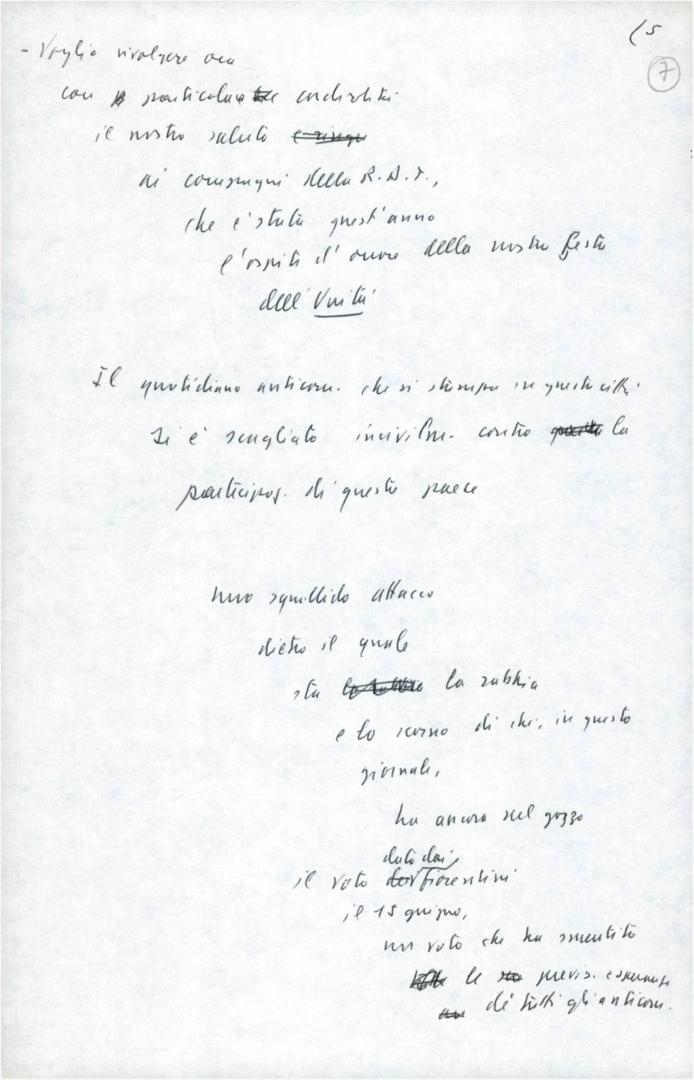 15
7
- Voglio rivolgere ora
con particolare cordialità
il nostro saluto
ai compagni della R.D.T.,
che è stata quest'anno
l'ospite d'onore della nostra festa
dell'Unità
Il quotidiano anticom. che si stampa in questa città
si è scagliato incivilm. contro la
partecipaz. di questo paese
uno squallido attacco
dietro il quale
sta la rabbia
e lo scorno di chi, in questo
giornale,
ha ancora nel gozzo
dato dai
il voto fiorentini
il 15 giugno,
un voto che ha smentito
le previs. e speranze
di tutti gli anticom.